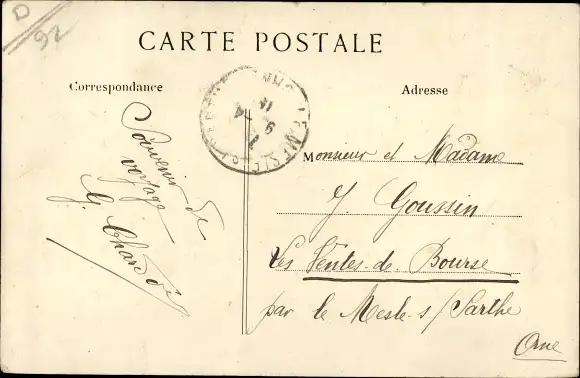 D
92
CARTE POSTALE
Correspondance
Adresse
Souvenir de
voyage
G.
Monsieur et Madame
J. Goussin
Les Ventes-de-Bourse
par le Mesle-s/Sarthe
Orne